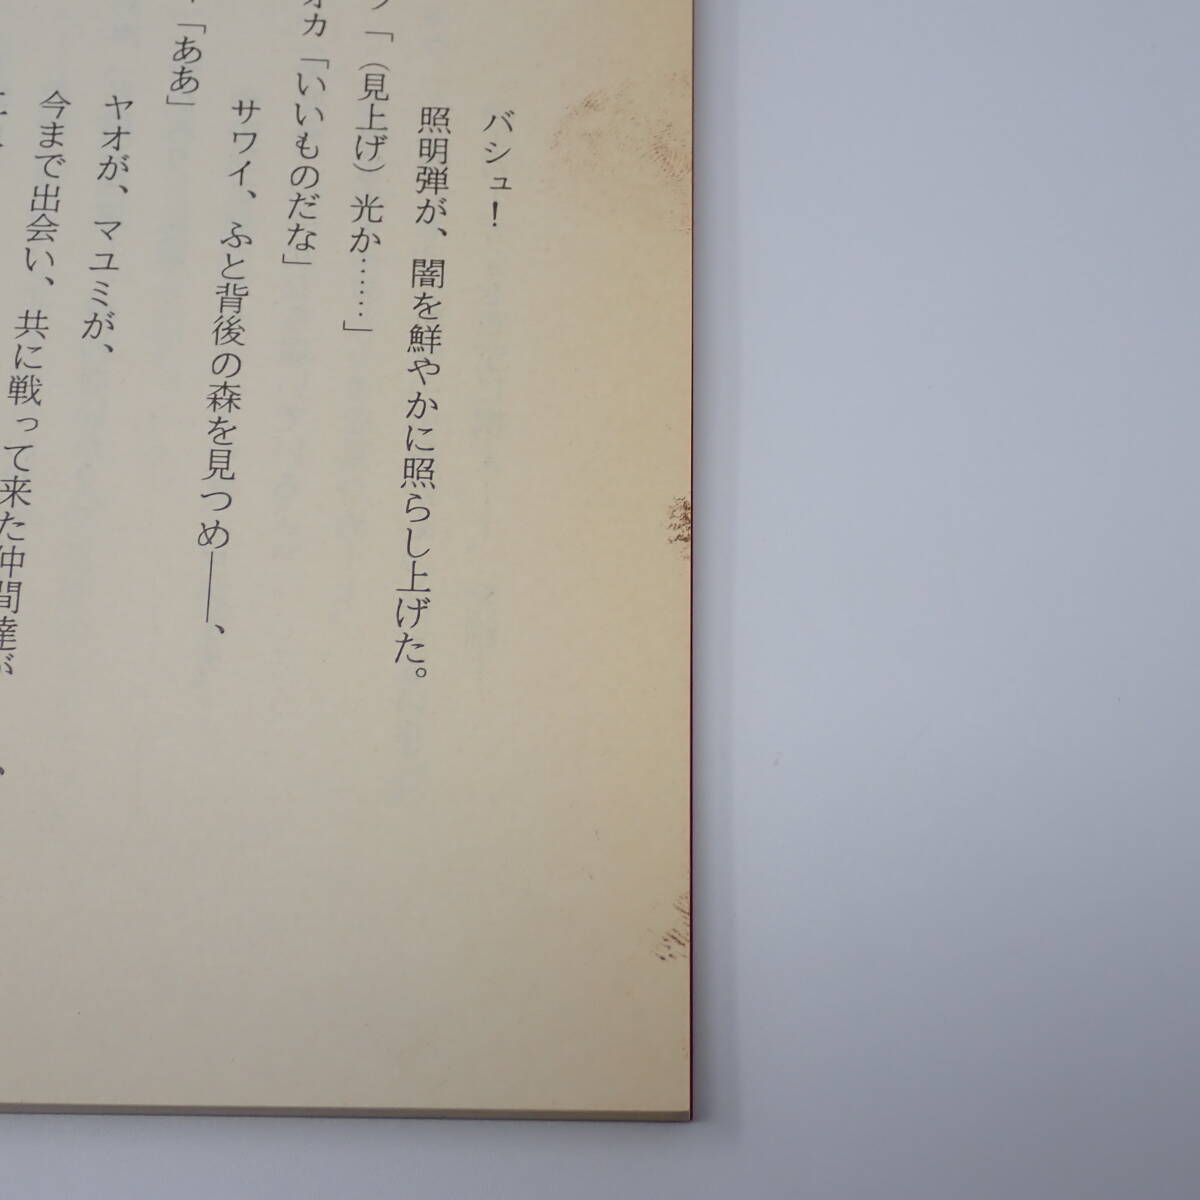 バシュ！
照明弾が、闇を鮮やかに照らし上げた。
「（見上げ）光か……」
オカ「いいものだな」
サワイ、ふと背後の森を見つめ――、
「ああ」
ヤオが、マユミが、
今まで出会い、共に戦って来た仲間達が